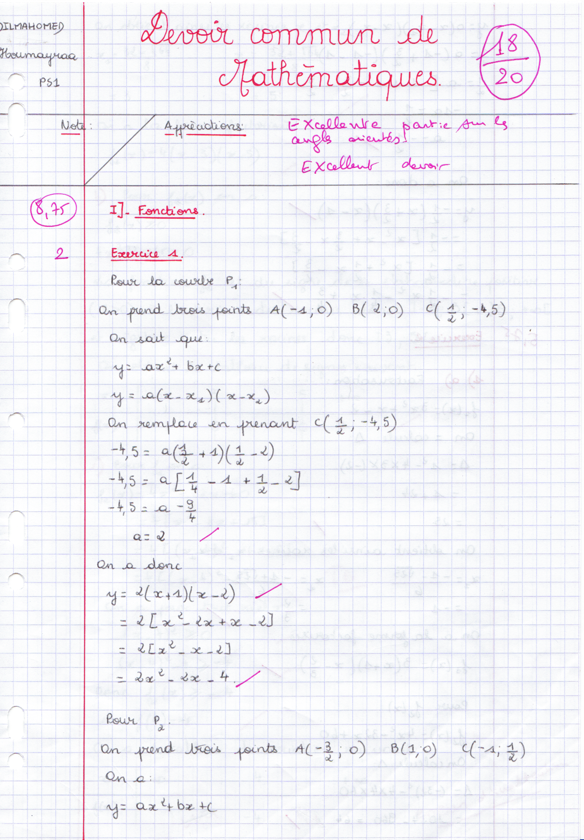 DILMAHOMED
Houmayraa
PS1
Devoir commun de
Mathématiques.
18
20
Note:
Appréciations:
EXcellente partie sur les
angles orientés!
EXcellent devoir
8,75
I]- Fonctions.
2
Exercice 1.
Pour la courbe P₁:
On prend trois points A(-1;0) B(2;0) C(1/2; -4,5)
On sait que:
y= ax²+ bx+c
y= a(x-x₁)(x-x₂)
On remplace en prenant C(1/2; -4,5)
-4,5= a(1/2+1)(1/2-2)
-4,5= a[1/4 - 1 + 1/2 - 2]
-4,5= a -9/4
a= 2
On a donc
y= 2(x+1)(x-2)
= 2[x²-2x+x-2]
= 2[x²-x-2]
= 2x²-2x-4.
Pour P₂.
On prend trois points A(-3/2; 0) B(1;0) C(-1; 1/2)
On a:
y= ax²+bx+c